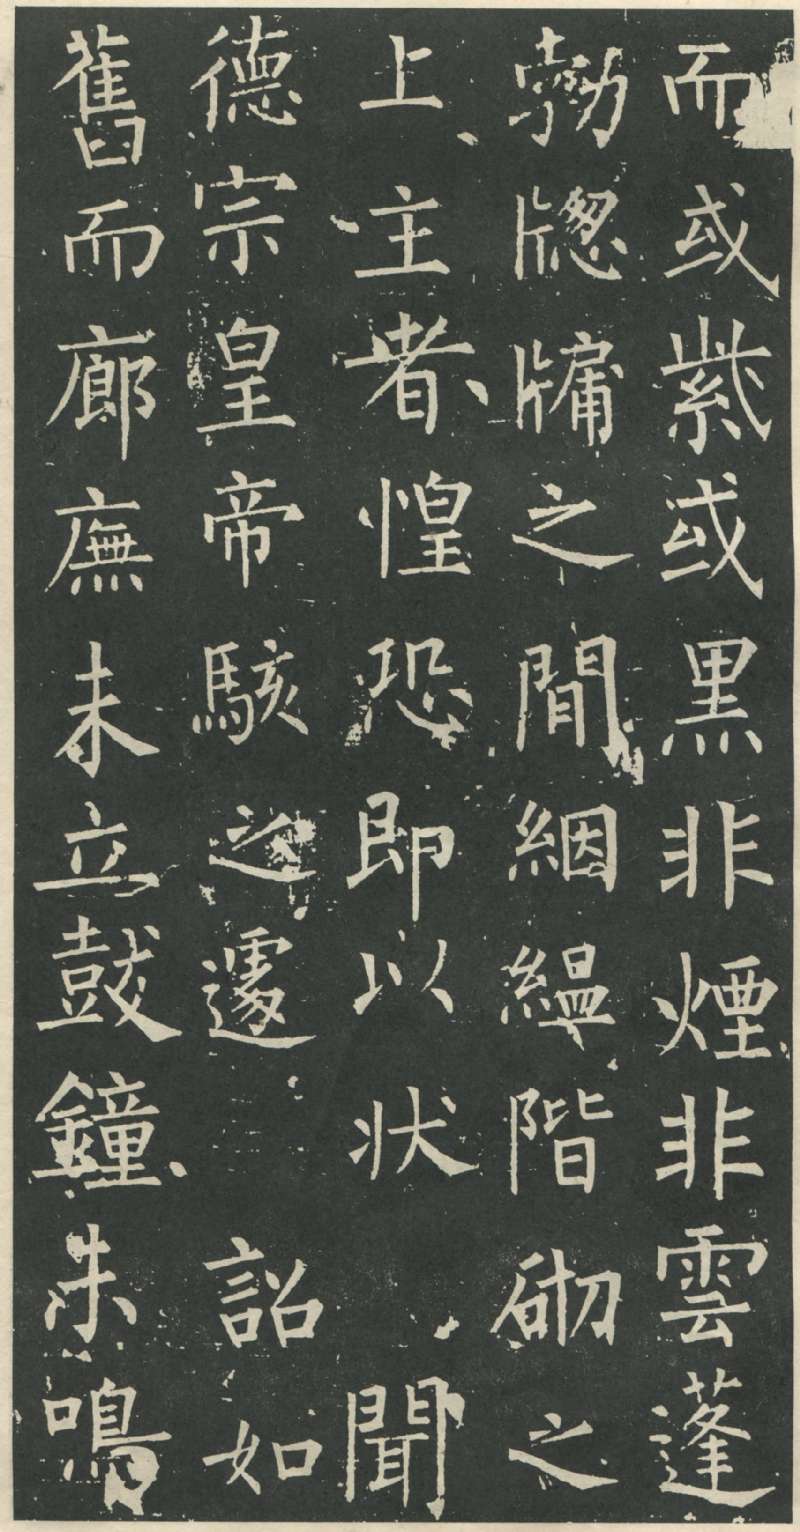 而或紫或黑非煙非雲蓬
勃牕牗之間絪縕階砌之
上主者惶恐即以狀聞
德宗皇帝駭之遽詔如
舊而廊廡未立鼓鐘未鳴